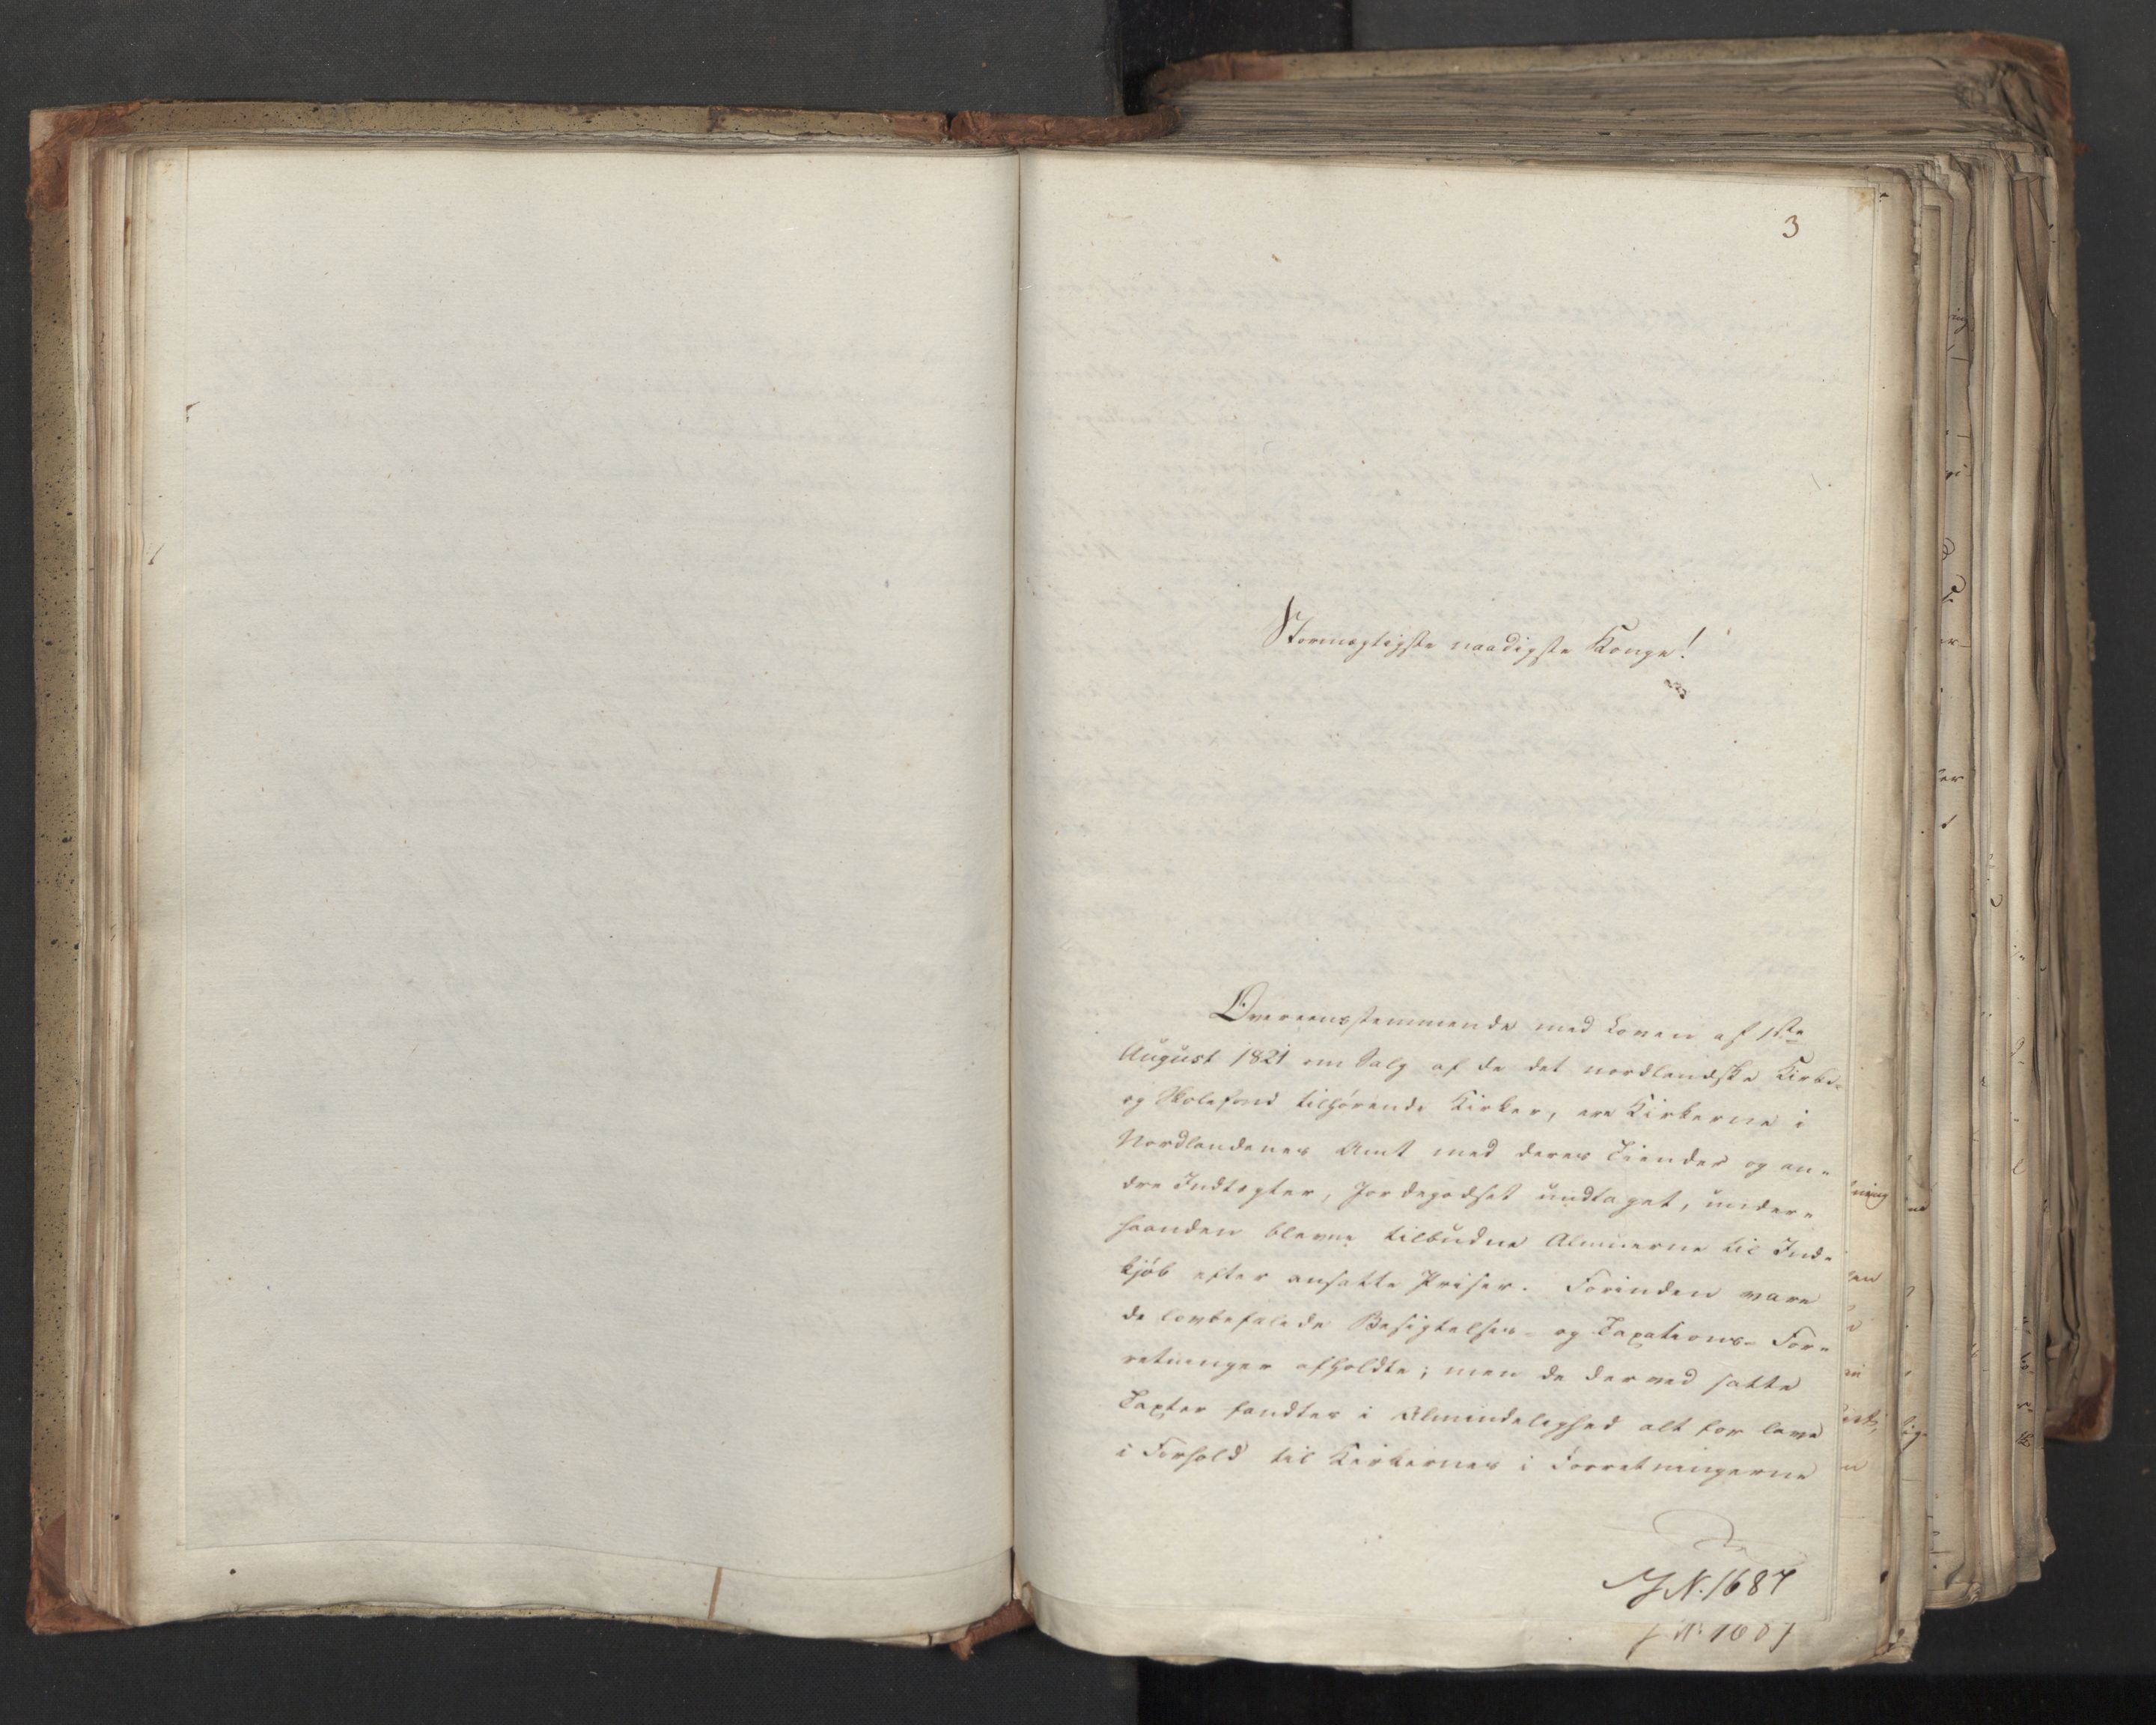 3
Stormægtigste naadigste Konge!
Overeensstemmende med Loven af 1ste
August 1821 om Salg af de det nordlandske Kirke-
og Skolefond tilhørende Kirker, ere Kirkerne i
Nordlandenes Amt med deres Tiender og an-
dre Indtægter, Jordegodset undtaget, under-
haanden blevne tilbudne Almuerne til Ind-
kjøb efter ansatte Priser. Forinden vare
de lovbefalede Besigtelses- og Taxations-For-
retninger afholdte; men de derved satte
Taxter fandtes i Almindelighed alt for lave
i Forhold til Kirkernes i Forretningerne
J N. 1687
J N. 1687